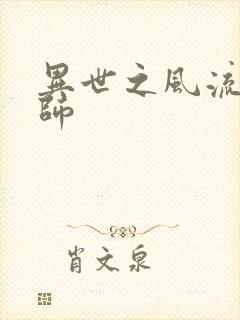 異世之風流
師
肖文泉